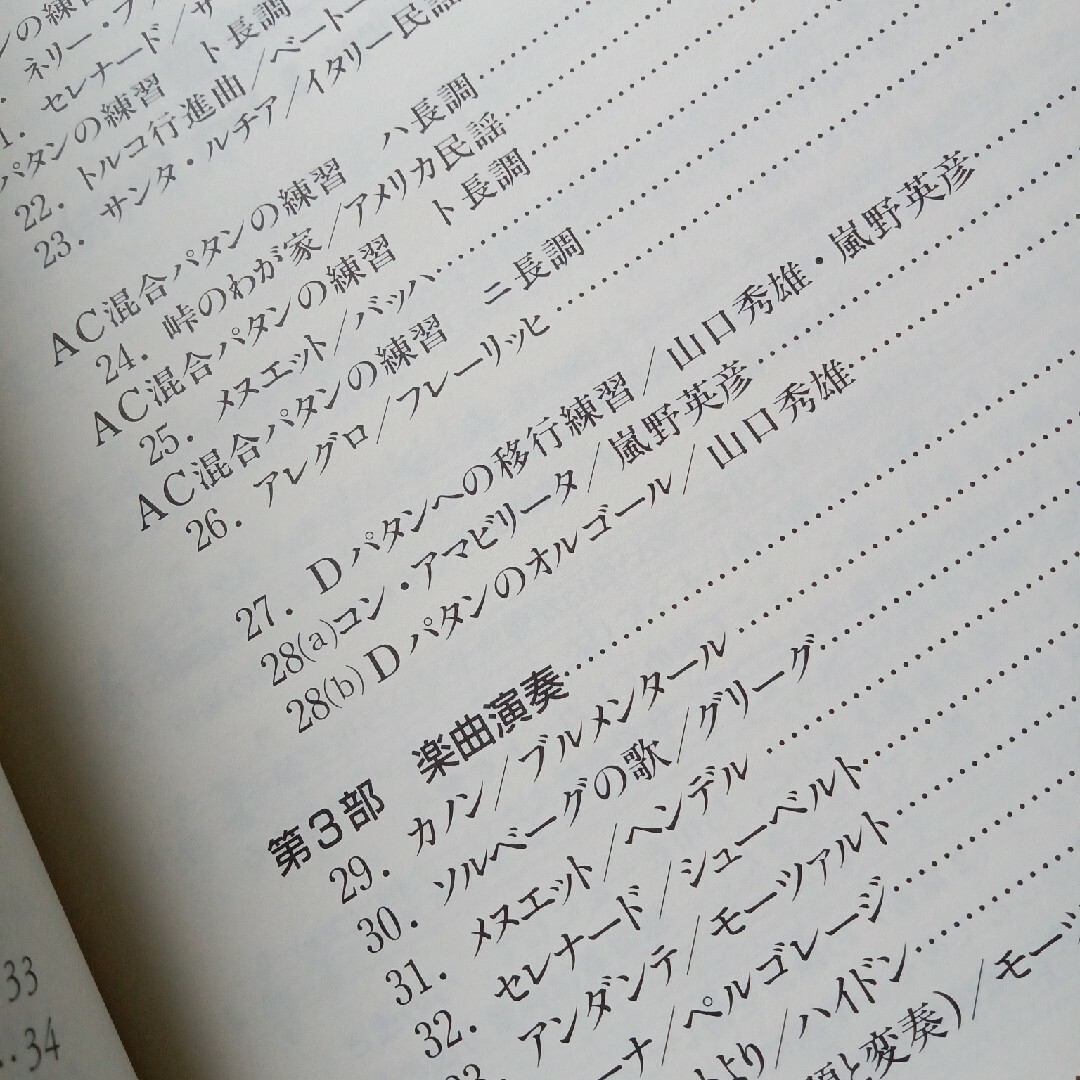 ンの練習
ネリー・ブ
1. セレナード/サ
パタンの練習 ト長調
22. トルコ行進曲/ベートー
23. サンタ・ルチア/イタリー民謡
AC混合パタンの練習 ハ長調
24. 峠のわが家/アメリカ民謡
AC混合パタンの練習 ト長調
25. メヌエット/バッハ
AC混合パタンの練習 ニ長調
26. アレグロ/フレーリッヒ
27. Dパタンへの移行練習/山口秀雄・嵐野英彦
28(a)コン・アマビリータ/嵐野英彦
28(b)Dパタンのオルゴール/山口秀雄
第3部 楽曲演奏
29. カノン/ブルメンタール
30. ソルベーグの歌/グリーグ
31. メヌエット/ヘンデル
32. セレナード/シューベルト
アンダンテ/モーツァルト
ーナ/ペルゴレージ
より/ハイドン
と変奏)/モー
33
34